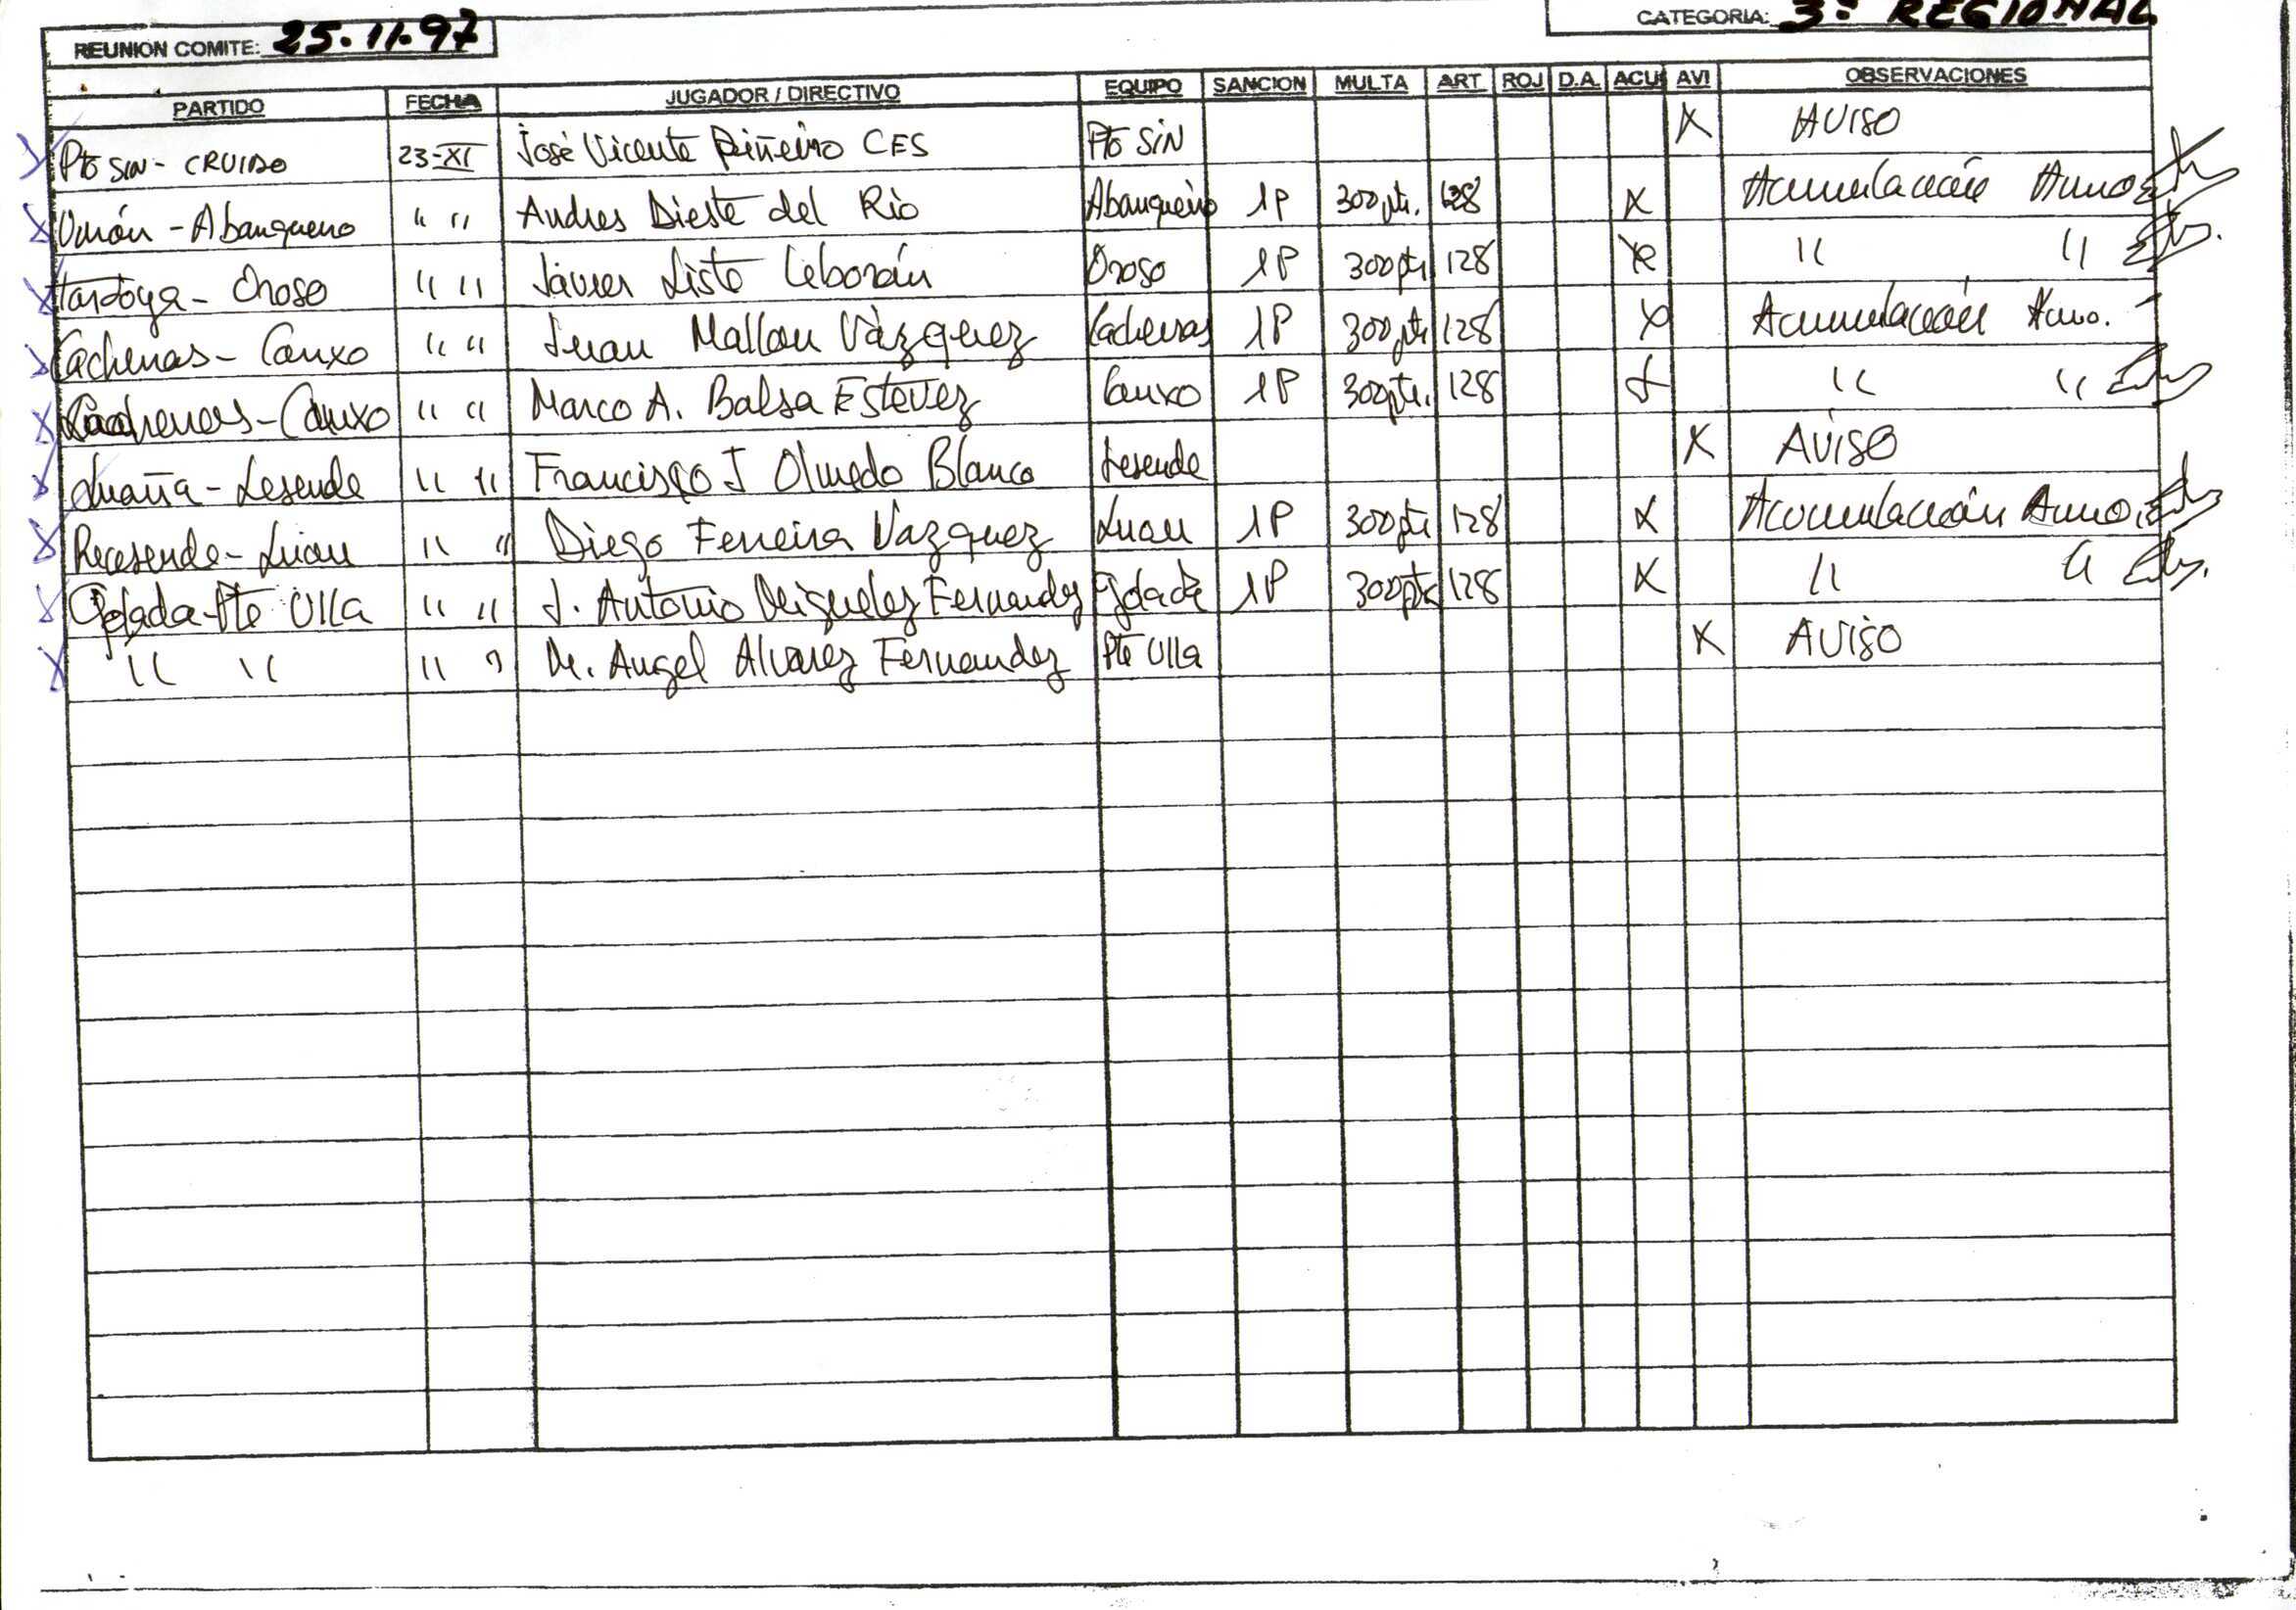 REUNION COMITE: 25.11.97
CATEGORIA: 3ª REGIONAL
PARTIDO FECHA JUGADOR / DIRECTIVO EQUIPO SANCION MULTA ART ROJ D.A. ACU AVI OBSERVACIONES
Pto SIN - CRUIDO 23-XI José Vicente Piñeiro CES Pto SIN X AVISO
Outón - Abanqueiro " " Andres Dieste del Rio Abanqueiro 1P 300 pts. 128 X Acumulación Amo
- Oroso " " Javier Liste Ceborán Oroso 1P 300 pts 128 X " "
Cacheiras - Conxo " " Juan Mallou Vàzquez Cacheiras 1P 300 pts 128 X Acumulación Amo.
Cacheiras - Conxo " " Marco A. Balsa Estevez Conxo 1P 300 pts. 128 X " "
Luaña - Lesende " " Francisco J Olmedo Blanco Lesende X AVISO
Recesende - Luou " " Diego Ferreira Vazquez Luou 1P 300 pts 128 X Acumulación Amo.
Golada - Pte Ulla " " J. Antonio Miguelez Fernandez Golada 1P 300 pts 128 X " "
" " " " M. Angel Alvarez Fernandez Pte Ulla X AVISO